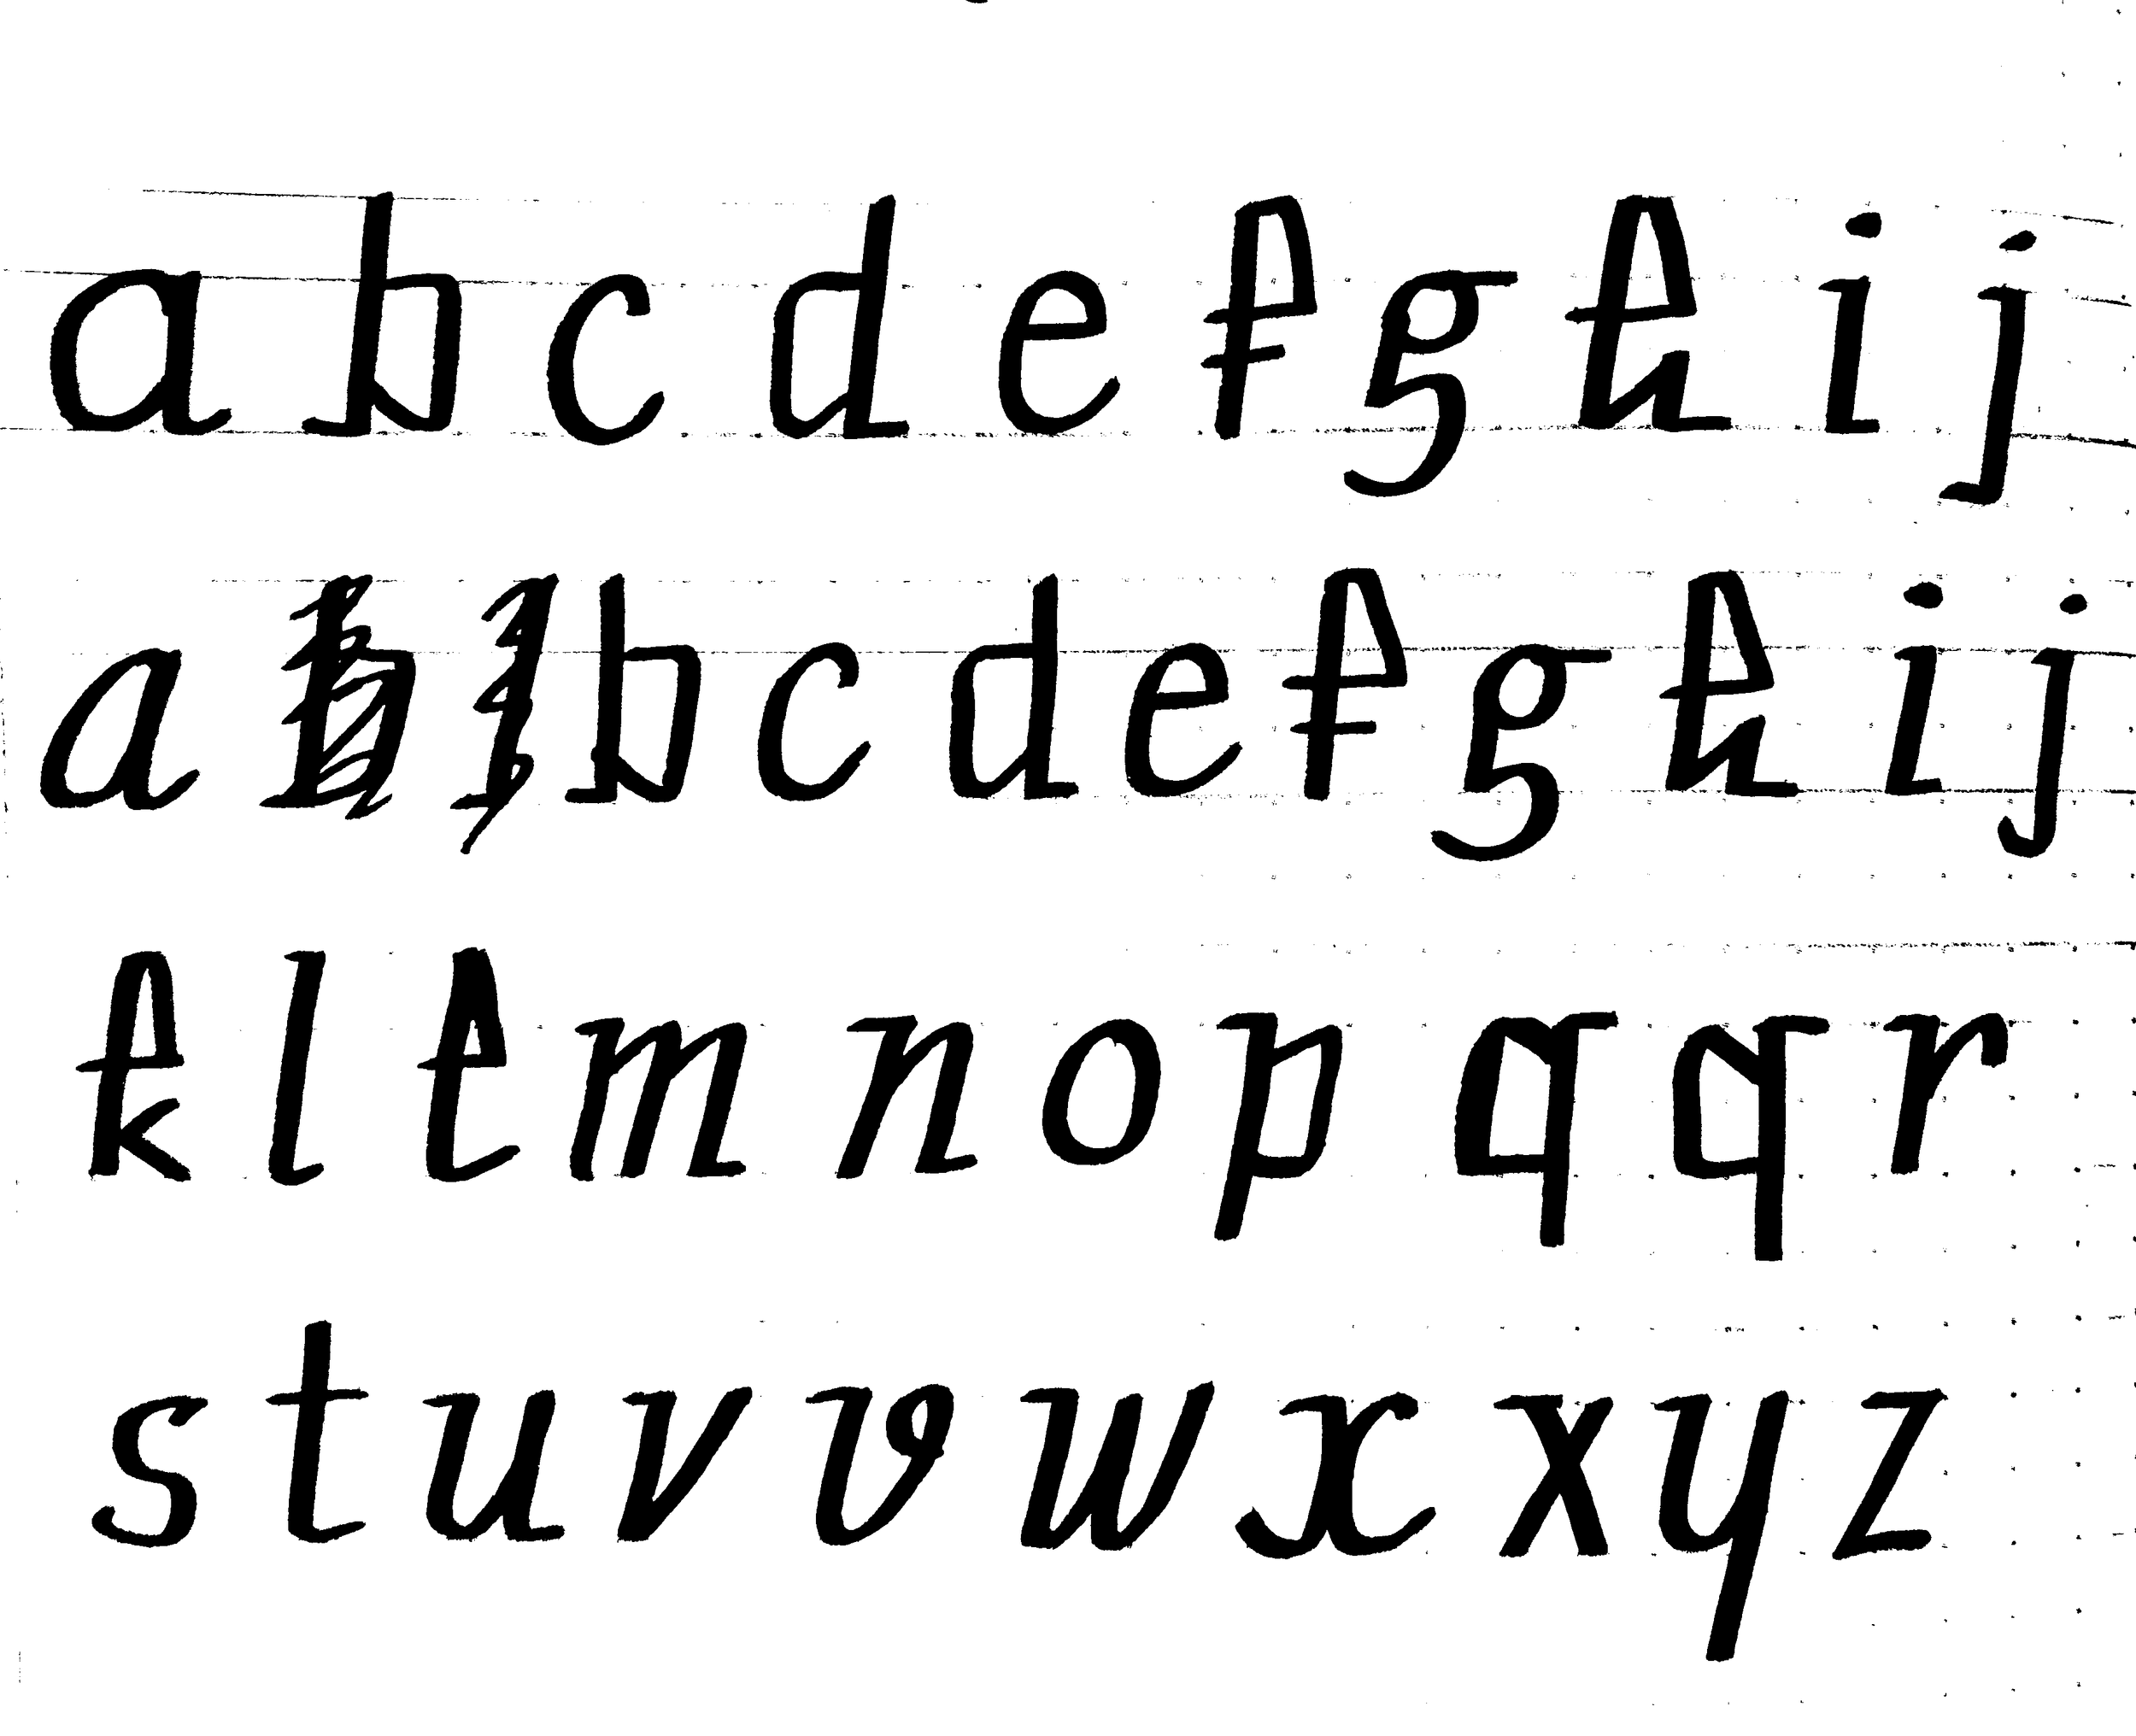 a b c d e f g h i j
a b c d e f g h i j
k l l m n o p q q r
s t u v v w x x y z